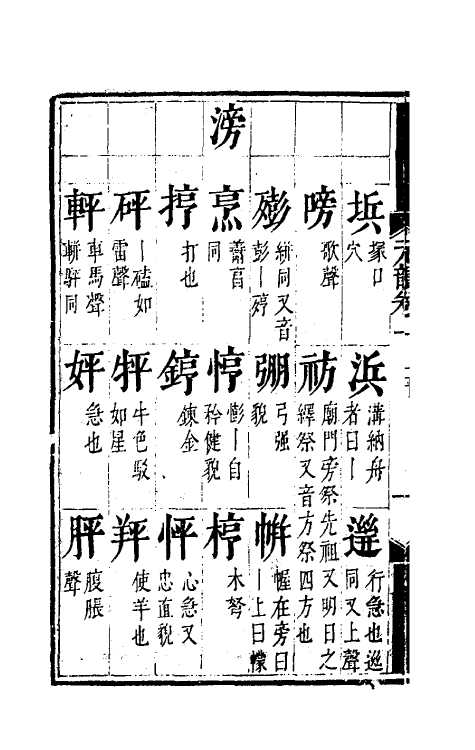 滂
垬 塚口穴
浜 溝納舟者曰丨
逬 行急也迸同又上聲
嗙 歌聲
祊 廟門旁祭先祖又明日之繹祭又音方祭四方也
嘭 絣同又音彭丨㾕
弸 弓强貌
帡 幄在旁曰丨上曰幪
烹 䔥亯同
悙 憉丨自矜健貌
椁 木弩
揨 打也
錞 鍊金
怦 心急又忠直貌
砰 丨磕如雷聲
牪 牛色駁如星
羘 使羊也
軯 車馬聲輧駍同
姘 急也
胓 腹脹聲